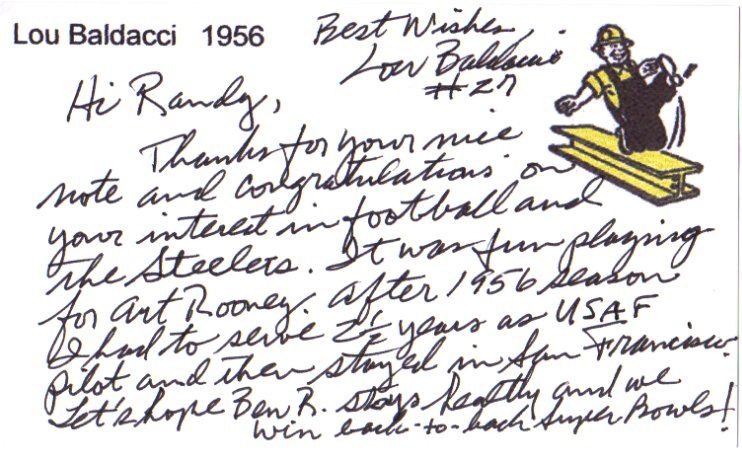 Lou Baldacci 1956
Best Wishes,
Lou Baldacci
#27
Hi Randy,
Thanks for your nice
note and congratulations on
your interest in football and
the Steelers. It was fun playing
for Art Rooney. After 1956 season
I had to serve 2½ years as USAF
pilot and then stayed in San Francisco.
Let's hope Ben R. stays healthy and we
win back-to-back Super Bowls!